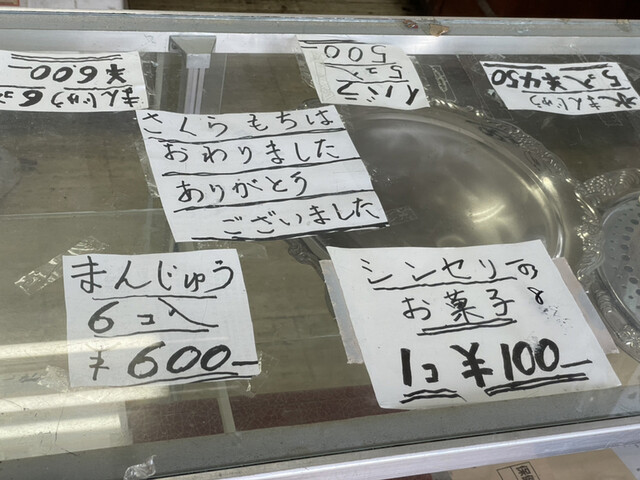 まんじゅう6コ
¥600-
イバラ
5コ入
500-
水まんじゅう
5コ入¥450
さくらもちは
おわりました
ありがとう
ございました
まんじゅう
6コ入
¥600-
シンセリーの
お菓子
1コ¥100-